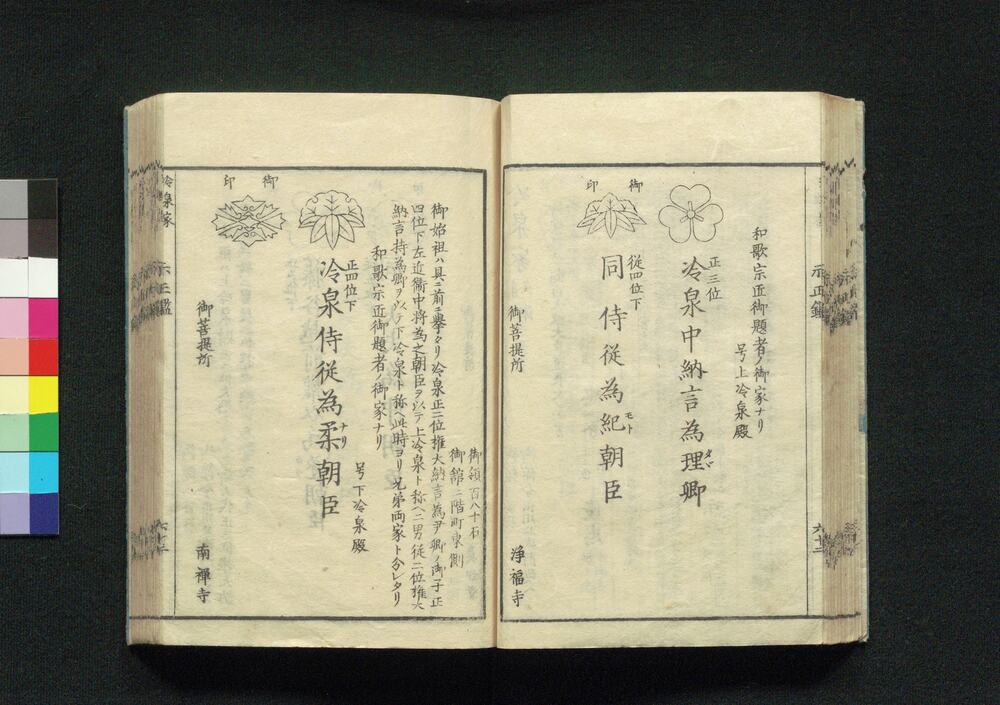 和歌宗匠御題者ノ御家ナリ
号上冷泉殿
正三位
冷泉中納言為理卿
タヾ
御印
従四位下
同侍従為紀朝臣
モト
御菩提所
浄福寺
六十二
御領百八十石
御館二階町東側
御始祖ハ具ニ前ニ挙タリ冷泉正二位権大納言為尹卿ノ御子正
四位下左近衛中将為之朝臣ヲ以テ上冷泉ト称ヘ二男従二位権大
納言持為卿ヲ以テ下冷泉ト称ヘ此時ヨリ兄弟両家ト分レタリ
和歌宗匠御題者ノ御家ナリ
号下冷泉殿
正四位下
冷泉侍従為柔朝臣
ナリ
御印
御菩提所
南禅寺
冷泉家